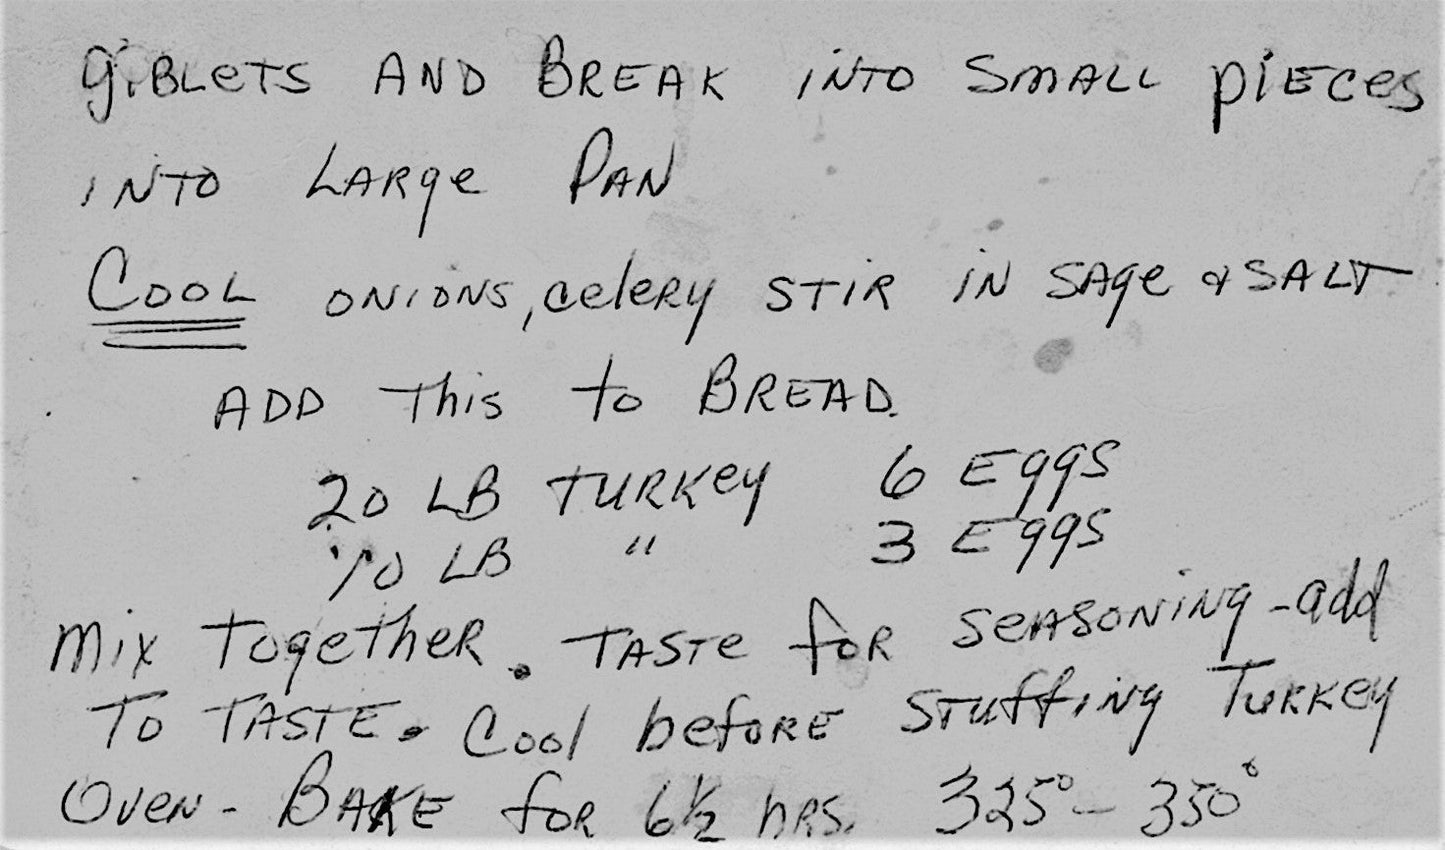 giBLeTS AND BREAK iNTO SMALL pieces
iNTO LARge PAN
COOL ONIONS, celeRy STiR iN SAge & SALT
ADD This to BREAD.
20 LB TURKey 6 Eggs
10 LB " 3 Eggs
Mix TogetheR. TASTe foR SeASONiNg - add
To TASTE. Cool befoRE STuffiNg TuRKey
OveN - BAKE foR 6½ hRS. 325° - 350°